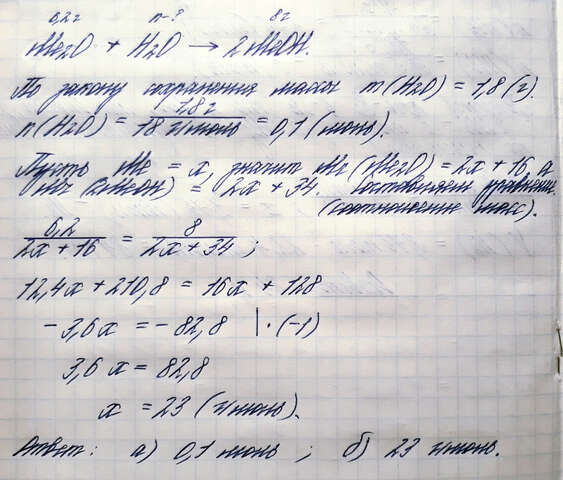 6,2г n-? 8г
Me₂O + H₂O → 2MeOH.
По закону сохранения массы m(H₂O) = 1,8 (г).
n(H₂O) = 1,8 г / 18 г/моль = 0,1 (моль).
Пусть Me = x, значит Mr (Me₂O) = 2x + 16, а
Mr (2MeOH) = 2x + 34. Составляем уравнение
(соотношение масс).
6,2 / 2x + 16 = 8 / 2x + 34 ;
12,4x + 210,8 = 16x + 128
- 3,6x = - 82,8 | · (-1)
3,6x = 82,8
x = 23 (г/моль).
Ответ: а) 0,1 моль ; б) 23 г/моль.